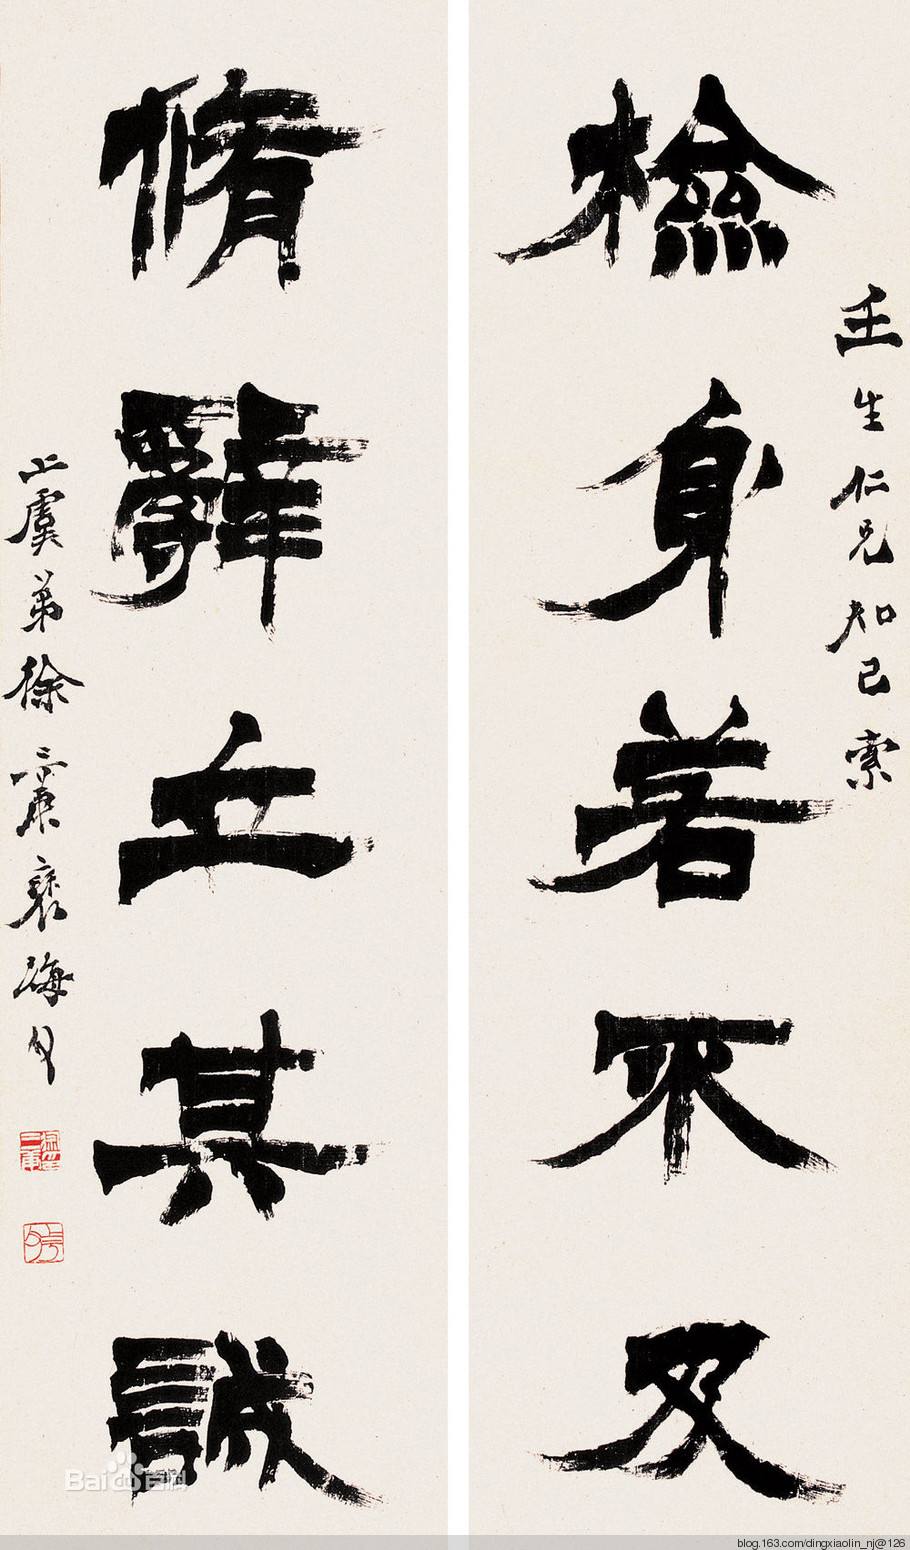 壬生仁兄知己索
檢身若不及
脩辭立其誠
上虞弟徐三庚褎海父
Bai百科
blog.163.com/dingxiaolin_nj@126